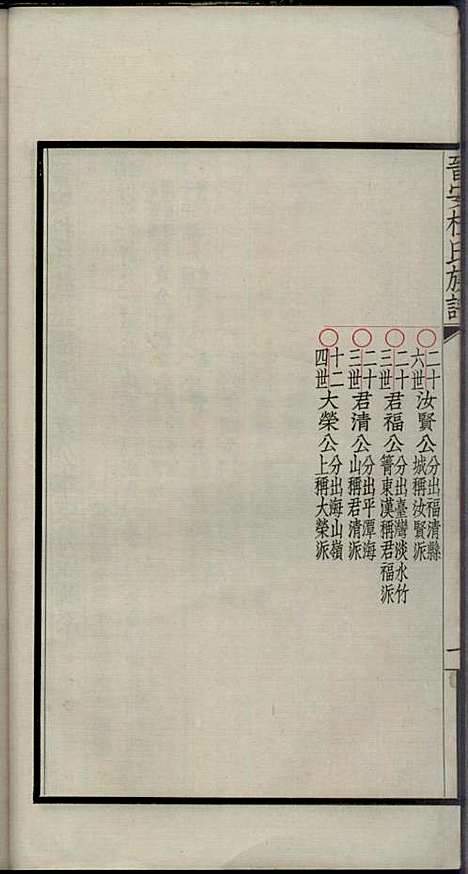 晉安杜氏族譜
二十六世汝賢公分出福清縣城稱汝賢派
二十三世君福公分出臺灣淡水竹箐東漢稱君福派
二十三世君清公分出平潭海山稱君清派
十二四世大榮公分出海山嶺上稱大榮派
一